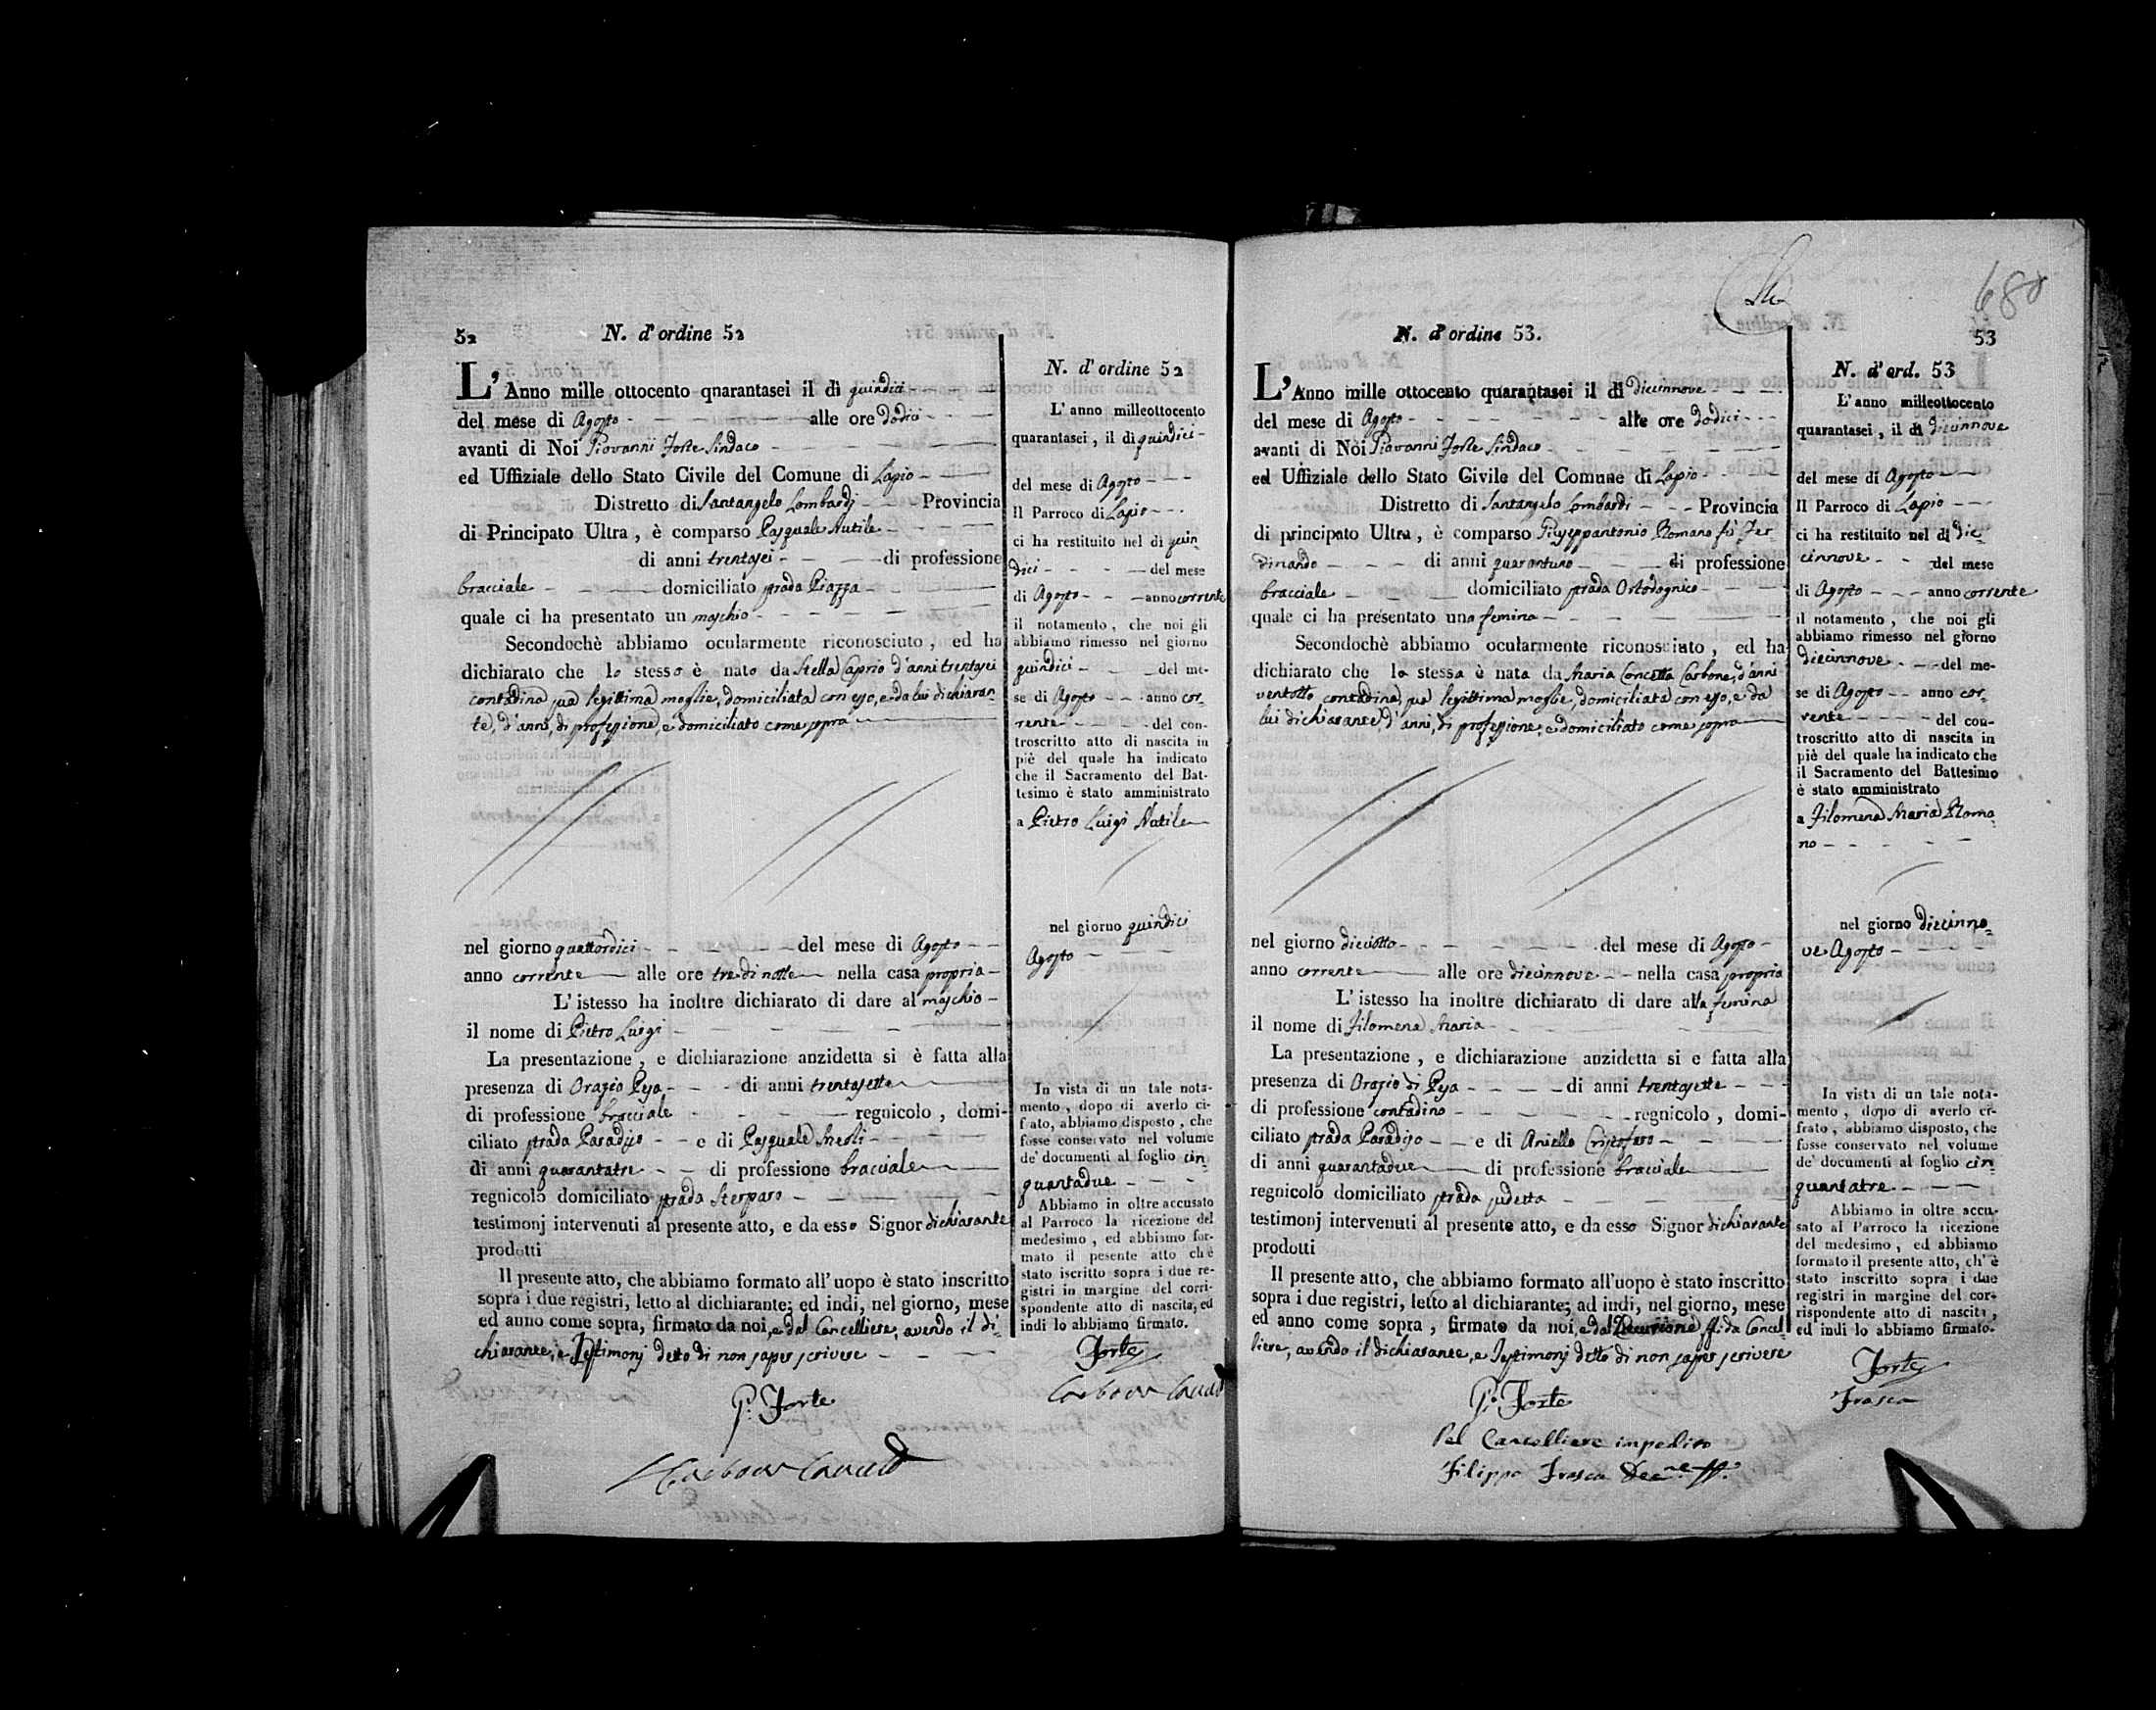 52
N. d'ordine 52
L'Anno mille ottocento quarantasei il dì quindici
del mese di Agosto alle ore dodici
avanti di Noi Giovanni Forte Sindaco
ed Uffiziale dello Stato Civile del Comune di Lapio
Distretto di Santangelo Lombardj Provincia
di Principato Ultra, è comparso Pasquale Nutile
di anni trentasei di professione
bracciale domiciliato strada Piazza
quale ci ha presentato un maschio
Secondochè abbiamo ocularmente riconosciuto, ed ha
dichiarato che lo stesso è nato da Stella Caprio d'anni trentasei
contadina sua legittima moglie, domiciliata con esso, e da lui dichiaran-
te, d'anni, di professione, e domiciliato come sopra
nel giorno quattordici del mese di Agosto
anno corrente alle ore tre di notte nella casa propria
L'istesso ha inoltre dichiarato di dare al maschio
il nome di Pietro Luigi
La presentazione, e dichiarazione anzidetta si è fatta alla
presenza di Orazio Pesa di anni trentasette
di professione bracciale regnicolo, domi-
ciliato strada Paradiso e di Pasquale
di anni quarantatre di professione bracciale
regnicolo domiciliato strada Sterparo
testimonj intervenuti al presente atto, e da esso Signor dichiarante
prodotti
Il presente atto, che abbiamo formato all'uopo è stato inscritto
sopra i due registri, letto al dichiarante; ed indi, nel giorno, mese
ed anno come sopra, firmato da noi, e dal Cancelliere, avendo il di-
chiarante, e Testimonj detto di non saper scrivere
G. Forte
N. d'ordine 52
L'anno milleottocento
quarantasei, il dì quindici
del mese di Agosto
Il Parroco di Lapio
ci ha restituito nel dì quin
dici del mese
di Agosto anno corrente
il notamento, che noi gli
abbiamo rimesso nel giorno
quindici del me-
se di Agosto anno cor-
rente del con-
troscritto atto di nascita in
piè del quale ha indicato
che il Sacramento del Bat-
tesimo è stato amministrato
a Pietro Luigi Nutile
nel giorno quindici
Agosto
In vista di un tale nota-
mento, dopo di averlo ci-
frato, abbiamo disposto, che
fosse conservato nel volume
de' documenti al foglio cin
quantadue
Abbiamo in oltre accusato
al Parroco la ricezione del
medesimo, ed abbiamo for-
mato il pesente atto che
stato iscritto sopra i due re-
gistri in margine del corri-
spondente atto di nascita, ed
indi lo abbiamo firmato.
Forte
53
N. d'ordine 53.
L'Anno mille ottocento quarantasei il dì diecinnove
del mese di Agosto alle ore dodici
avanti di Noi Giovanni Forte Sindaco
ed Uffiziale dello Stato Civile del Comune di Lapio
Distretto di Santangelo Lombardi Provincia
di principato Ultra, è comparso Giuseppantonio Romano fù Fer
dinando di anni quarantuno di professione
bracciale domiciliato strada Ortodognico
quale ci ha presentato una femina
Secondochè abbiamo ocularmente riconosciuto, ed ha
dichiarato che la stessa è nata da Maria Concetta Carbone, d'anni
ventotto contadina, sua legittima moglie, domiciliata con esso, e da
lui dichiarante, d'anni, di professione, e domiciliato come sopra
nel giorno dieciotto del mese di Agosto
anno corrente alle ore diecinnove nella casa propria
L'istesso ha inoltre dichiarato di dare alla femina
il nome di Filomena Maria
La presentazione, e dichiarazione anzidetta si e fatta alla
presenza di Orazio di Pesa di anni trentasette
di professione contadino regnicolo, domi-
ciliato strada Paradiso e di Aniello Cristofaro
di anni quarantadue di professione bracciale
regnicolo domiciliato strada sudetta
testimonj intervenuti al presente atto, e da esso Signor dichiarante
prodotti
Il presente atto, che abbiamo formato all'uopo è stato inscritto
sopra i due registri, letto al dichiarante; ad indi, nel giorno, mese
ed anno come sopra, firmato da noi, e dal Decurione ff. da Cancel-
liere, avendo il dichiarante, e Testimonj detto di non saper scrivere
G. Forte
Pel Cancelliere impedito
Filippo Frasca Dec.ne ff.
680
53
N. d'ord. 53
L'anno milleottocento
quarantasei, il dì diecinnove
del mese di Agosto
Il Parroco di Lapio
ci ha restituito nel dì die-
cinnove del mese
di Agosto anno corrente
il notamento, che noi gli
abbiamo rimesso nel giorno
diecinnove del me-
se di Agosto anno cor-
rente del con-
troscritto atto di nascita in
piè del quale ha indicato che
il Sacramento del Battesimo
è stato amministrato
a Filomena Maria Roma-
no
nel giorno diecinno-
ve Agosto
In vista di un tale nota-
mento, dopo di averlo ci-
frato, abbiamo disposto, che
fosse conservato nel volume
de' documenti al foglio cin
quantatre
Abbiamo in oltre accu-
sato al Parroco la ricezione
del medesimo, ed abbiamo
formato il presente atto, ch'è
stato inscritto sopra i due
registri in margine del cor-
rispondente atto di nascita,
ed indi lo abbiamo firmato.
Forte
Frasca